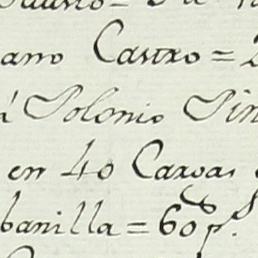 ano Castro =
á Polonio Pin
en 40 Cargas
banilla = 60 p.s